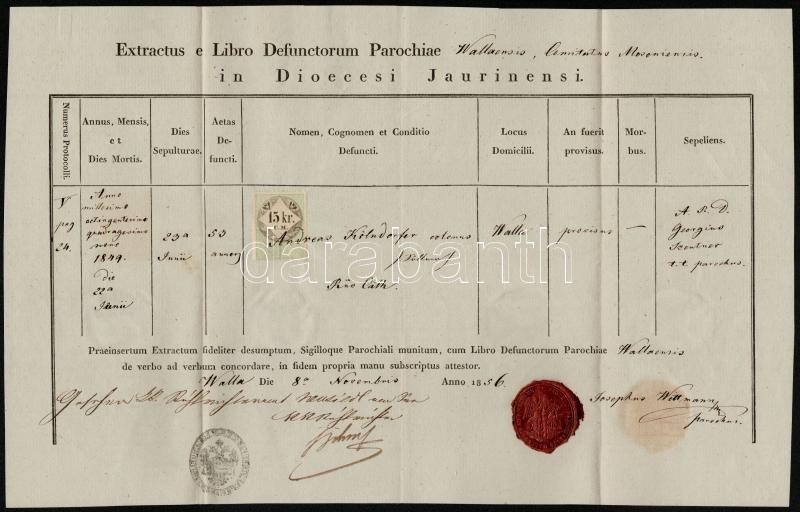 Extractus e Libro Defunctorum Parochiae Wallaensis, Comitatus Mosoniensis.
in Dioecesi Jaurinensi.
Numerus Protocolli.
Annus, Mensis, et Dies Mortis.
Dies Sepulturae.
Aetas Defuncti.
Nomen, Cognomen et Conditio Defuncti.
Locus Domicilii.
An fuerit provisus.
Mor-bus.
Sepeliens.
V
pag
24.
Anno
millesimo
octingentesimo
quadragesimo
nono
1849.
die
22a
Junii
23a
Junii
53
annor
15 kr.
C.M.
Andreas Kölndorfer colonus
Rno Cath.
Walla
provisus
—
A. R. D.
Georgius
Zentner
t. t. parochus.
darabanth
Praeinsertum Extractum fideliter desumptum, Sigilloque Parochiali munitum, cum Libro Defunctorum Parochiae Wallaensis
de verbo ad verbum concordare, in fidem propria manu subscriptus attestor.
Walla Die 8a Novembris Anno 1856.
Josephus Wittmann
parochus.